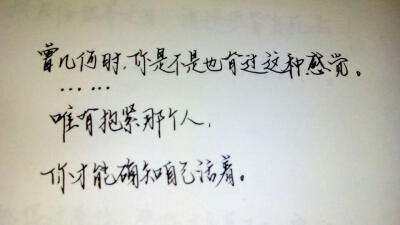 曾几何时，你是不是也有过这种感觉。
……
唯有抱紧那个人，
你才能确知自己活着。